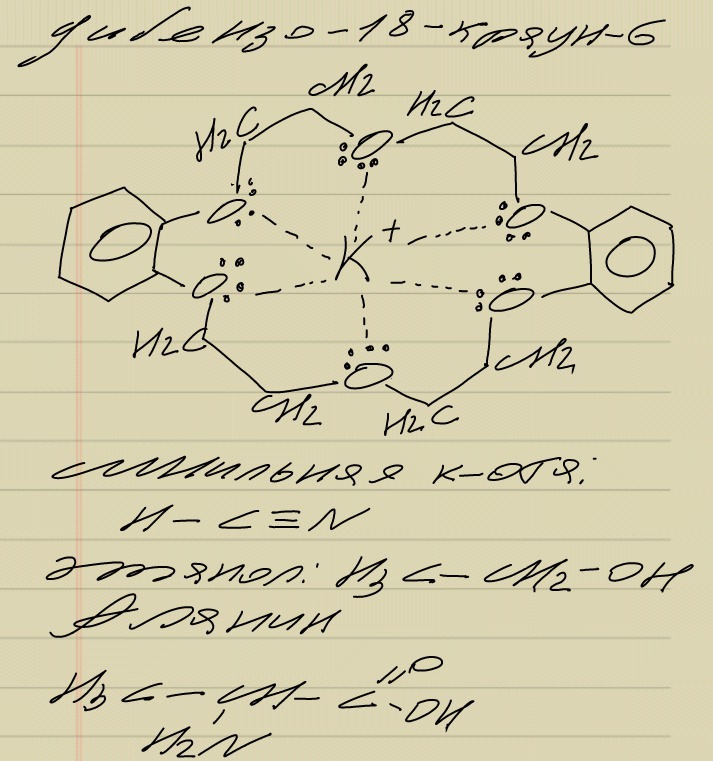 дибензо-18-краун-6
CH2 H2C
H2C CH2
O
O O
K+
O O
H2C O CH2
CH2 H2C
синильная к-ота:
H-C≡N
этанол: H3C-CH2-OH
Аланин
O
H3C-CH-C-OH
H2N